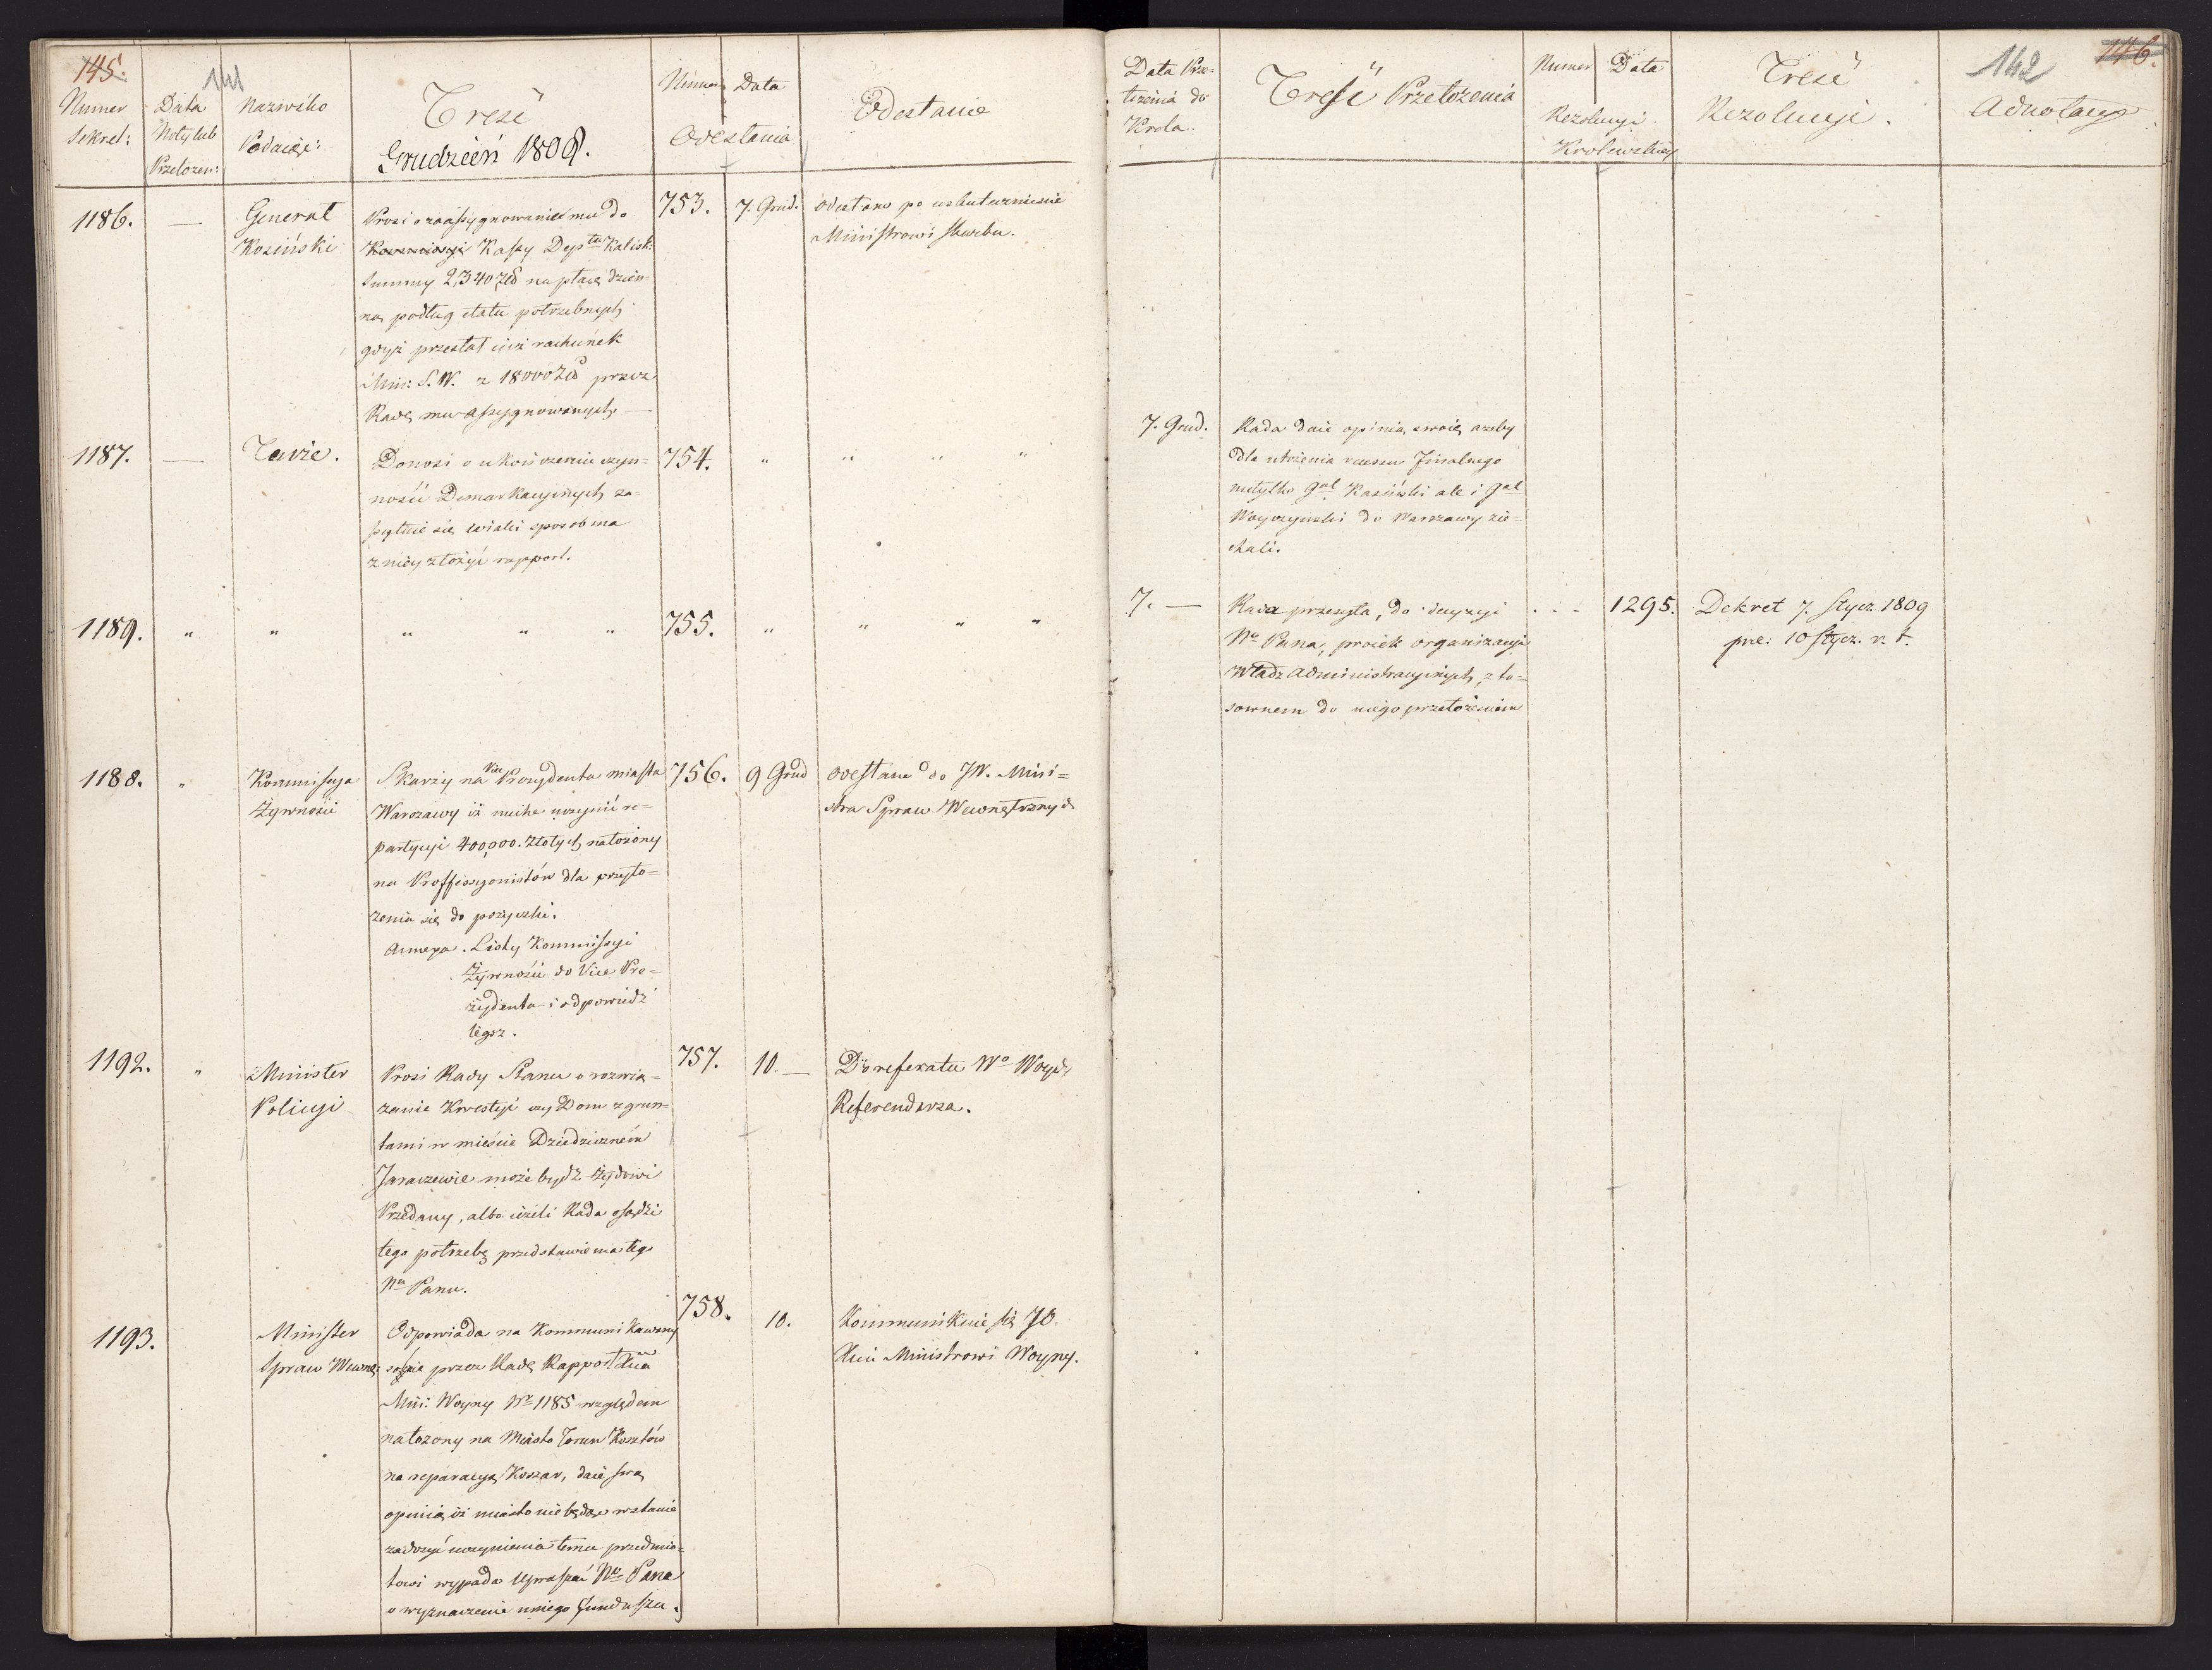 145.
141
Numer
Sekret:
Data
Noty lub
Przelozen:
Nazwisko
Podaiące:
Treść
Grudzień 1808.
Numer
Data
Odesłania
Odesłanie
1186.
—
Generał
Kosiński
Prosi o zaassygnowanie mu do
Kassy Dep<sup>tu</sup> Kalisk:
Summy 2,340 Zł na płacę dzien=
ną podług etatu potrzebnych
gdyż przesłał iuż rachunek
Min: S. W. z 18000 Zł przez
Radę mu assygnowanych. —
753.
7. Grud.
odesłano po uskutecznienie
Ministrowi skarbu.
1187.
—
Tenże.
Donosi o ukończeniu czyn=
ności Demarkacyinych za=
pytuie się w iaki sposob ma
z niey złożyć rapport.
754.
" " " "
1189.
" " " " "
755.
" " " "
1188.
"
Kommissya
Żywności
Skarży na Vice Prezydenta miasta
Warszawy iż niechce uczynić re=
partycyi 400,000. Złotych nałożony
na Proffessyonistów dla przyło=
żenia się do pożyczki.
Annexa. Listy Kommissyi
Żywności do Vice Pre=
zydenta i odpowiedź
tegoz.
756.
9 Grud
odesłane do JW. Mini=
stra Spraw Wewnętrznych
1192.
"
Minister
Policyi
Prosi Rady Stanu o rozwią=
zanie Kwestyi czy Dom z grun=
tami w mieście Dziedzicznem
Jaraczewie może bydź żydowi
Przedany, albo ieżeli Rada osądzi
tego potrzebę przedstawienia tego
N<sup>u</sup> Panu.
757.
10. —
Do referatu W<sup>o</sup> Woyd:
Referendarza.
1193.
Minister
Spraw Wewnę:
Odpowiada na Kommunikowany
sobie przez Radę Rapport
Min: Woyny N<sup>o</sup> 1185 względem
nałożony na Miasto Torun Kosztów
na reparacyą Koszar, daie swą
opinią iż miasto nie będąc w stanie
zadosyć uczynienia temu przedmio=
towi wypada upraszać N<sup>o</sup> Pana
o wyznaczenie innego funduszu.
758.
10.
Kommunikuie się JO.
Xciu Ministrowi Woyny.
142
146.
Data Prze=
łożenia do
Krola.
Treść Przełożenia
Numer
Data
Rezolucyi
Krolewskiey
Treść
Rezolucyi.
Adnotacye
7. Grud.
Rada daie opinią swoię azeby
dla ułożenia recessu finalnego
nietylko G<sup>ał</sup> Kosiński ale i G<sup>ał</sup>
Woyczyński do Warszawy zie=
chali.
7. —
Rada przesyła, do decyzyi
N<sup>o</sup> Pana, proiekt organizacyi
Władz Administracyinych, z sto=
sownem do niego przełożeniem
1295.
Dekret 7. Stycz 1809
pre: 10 Stycz. r. t.